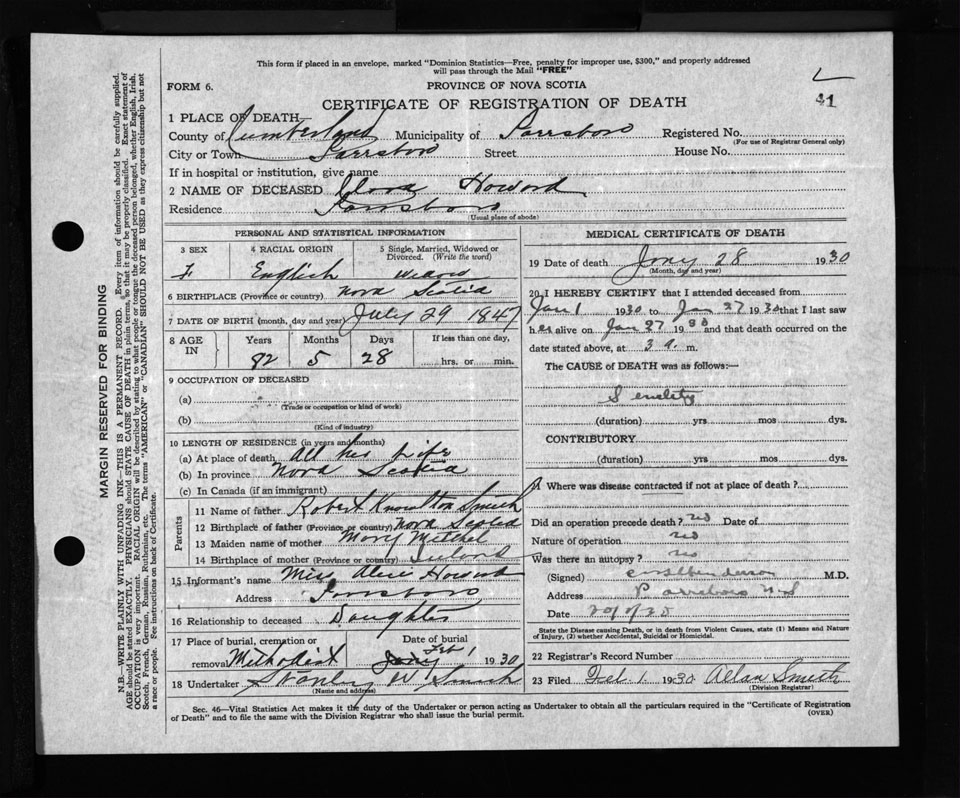 This form if placed in an envelope, marked "Dominion Statistics—Free, penalty for improper use, $300," and properly addressed
will pass through the Mail "FREE"
FORM 6.
PROVINCE OF NOVA SCOTIA
41
CERTIFICATE OF REGISTRATION OF DEATH
1 PLACE OF DEATH—
County of Cumberland Municipality of Parrsboro Registered No.
(For use of Registrar General only)
City or Town Parrsboro Street House No.
If in hospital or institution, give name
2 NAME OF DECEASED Howard
Residence Parrsboro
(Usual place of abode)
PERSONAL AND STATISTICAL INFORMATION
3 SEX 4 RACIAL ORIGIN 5 Single, Married, Widowed or Divorced. (Write the word)
F. English Widow
6 BIRTHPLACE (Province or country) Nova Scotia
7 DATE OF BIRTH (month, day and year) July 29 1847
8 AGE IN Years Months Days If less than one day,
82 5 28 hrs. or min.
9 OCCUPATION OF DECEASED
(a)
(Trade or occupation or kind of work)
(b)
(Kind of industry)
10 LENGTH OF RESIDENCE (in years and months)
(a) At place of death All her Life
(b) In province Nova Scotia
(c) In Canada (if an immigrant)
Parents
11 Name of father Robert Knowlton Smith
12 Birthplace of father (Province or country) Nova Scotia
13 Maiden name of mother Mary Mitchel
14 Birthplace of mother (Province or country)
15 Informant's name Miss Howard
Address Parrsboro
16 Relationship to deceased Daughter
17 Place of burial, cremation or removal Methodist Date of burial Feb 1 1930
18 Undertaker Stanley W Smith
(Name and address)
MEDICAL CERTIFICATE OF DEATH
19 Date of death Jany 28 1930
(Month, day and year)
20 I HEREBY CERTIFY that I attended deceased from
Jan 1 1930 to Jan 27 1930 that I last saw
her alive on Jan 27 1930 and that death occurred on
date stated above, at 3 a. m.
The CAUSE of DEATH was as follows:—
Senility
(duration) yrs mos dys.
CONTRIBUTORY
(duration) yrs mos dys.
21 Where was disease contracted if not at place of death?
Did an operation precede death? no Date of
Nature of operation no
Was there an autopsy? no
(Signed) M.D.
Address Parrsboro N S
Date
State the Disease causing Death, or in death from Violent Causes, state (1) Means and Nature
of Injury, (2) whether Accidental, Suicidal or Homicidal.
22 Registrar's Record Number
23 Filed Feb. 1 1930 Allan Smith
(Division Registrar)
Sec. 46—Vital Statistics Act makes it the duty of Undertaker or person acting as Undertaker to obtain all the particulars required in the "Certificate of Registration
of Death" and to file the same with the Division Registrar who shall issue the burial permit.
(OVER)
MARGIN RESERVED FOR BINDING
N.B.—WRITE PLAINLY WITH UNFADING INK—THIS IS A PERMANENT RECORD. Every item of information should be carefully supplied.
AGE should be stated EXACTLY. PHYSICIANS should STATE CAUSE OF DEATH in plain terms, so that it may be properly classified. Exact statement of
OCCUPATION is very important. RACIAL ORIGIN will be described by stating to what people or tongue the deceased person belonged, whether English, Irish,
Scotch, French, German, Russian, Ruthenian, etc. The terms "AMERICAN" or "CANADIAN" SHOULD NOT BE USED as they express citizenship but not
a race or people. Fee instructions on back of Certificate.